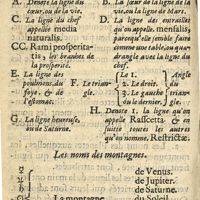 A. Denote la ligne du
cœur, ou de la vie.
C. La ligne du chef
appellée media
naturalis.
CC. Rami prosperita-
tis, les branches de
la prosperité.
E. La ligne des
poulmons, du
foye, & de
l'estomac.
G. La ligne heureuse,
ou de Saturne.
B. La sœur de la ligne de la
vie, ou la ligne de Mars.
D. La ligne des entrailles
qu'on appelle, mensalis,
parce qu'elle semble faire
comme une table, ou qua-
drangle avec la ligne du
chef.
F. Le trian-
gle.
Le 1.
Le droit.
Le 3.
ou le dernier.
Angle
du
trian-
gle.
H. Denote la ligne qu'on
appelle Rascetta & en
suitte toutes les autres
qu'on nomme, Restrictæ.
Les noms des montagnes.
La montagne
de Venus.
de Jupiter.
de Saturne.
du Soleil.